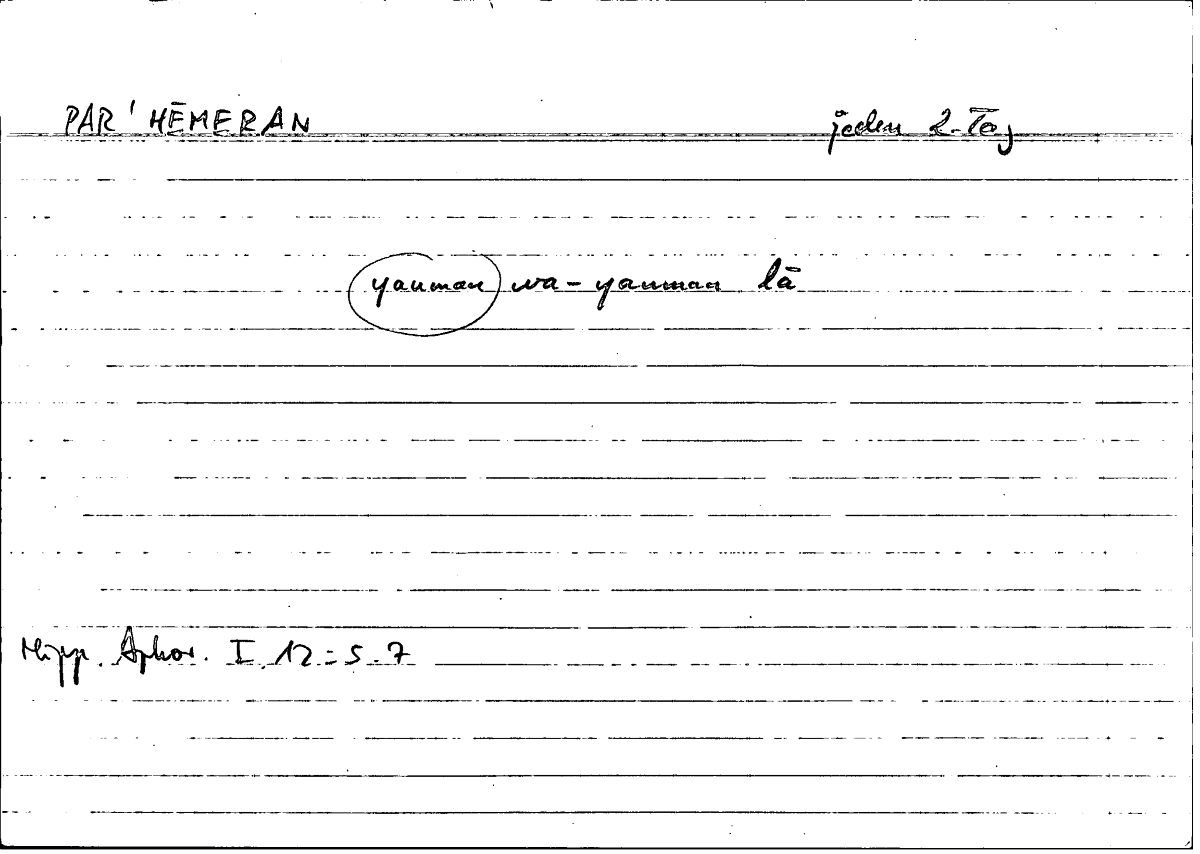 PAR' HĒMERAN jeden 2. Tag
yauman wa-yauman lā
Hipp. Aphor. I, 12 = 5.7